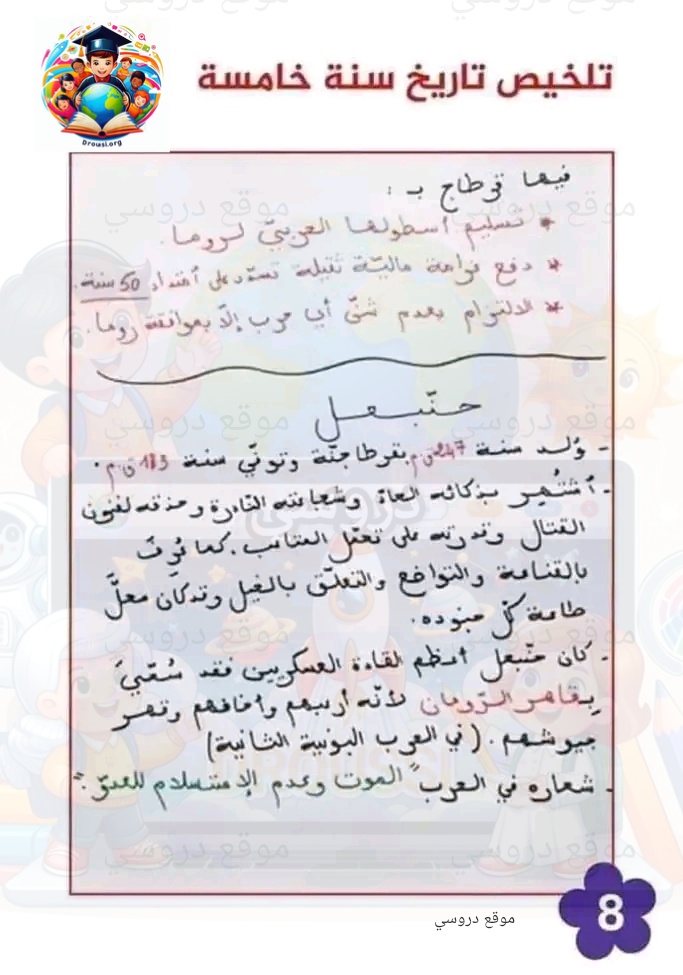 تلخيص تاريخ سنة خامسة
Drousi.org
فيها قرطاج بـ :
* تسليم أسطولها الحربيّ لروما.
* دفع غرامة ماليّة ثقيلة تسدّد على امتداد 50 سنة.
* الالتزام بعدم شنّ أي حرب إلاّ بموافقة روما.
حنّبعل
- وُلد سنة 247 ق م بقرطاجنّة وتوفّي سنة 183 ق م.
- اشتُهر بذكائه الحادّ وشجاعته النّادرة وحذقه لفنون
القتال وقدرته على تحمّل المتاعب. كما عُرِفَ
بالقناعة والتواضع والتعلّق بالخيل وقد كان محلَّ
طاعة كلّ جنوده.
- كان حنّبعل أعظم القادة العسكريين فقد سُمّيَ
بِقاهر الرّومان لأنّه أرهبهم وأخافهم وقهر
جيوشهم. (في الحرب البونية الثانية)
- شعاره في الحرب "الموت وعدم الإستسلام للعدوّ."
موقع دروسي
8
موقع دروسي
دروسي
DROUSSI